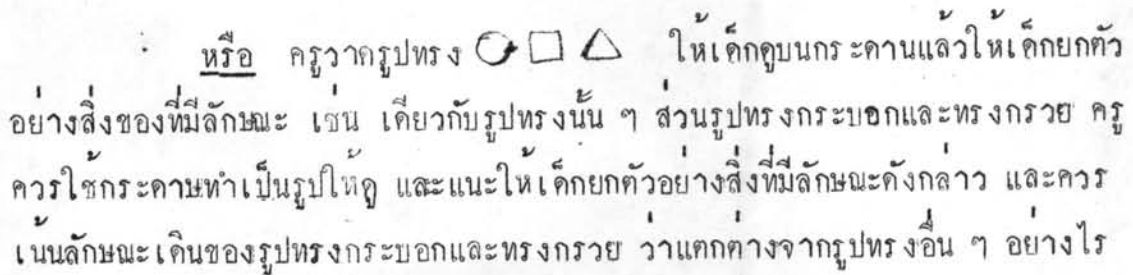 หรือ ครูวาดรูปทรง ○ □ △ ให้เด็กดูบนกระดานแล้วให้เด็กยกตัว
อย่างสิ่งของที่มีลักษณะ เช่น เดียวกับรูปทรงนั้น ๆ ส่วนรูปทรงกระบอกและทรงกรวย ครู
ควรใช้กระดาษทำเป็นรูปให้ดู และแนะให้เด็กยกตัวอย่างสิ่งที่มีลักษณะดังกล่าว และควร
เน้นลักษณะเด่นของรูปทรงกระบอกและทรงกรวย ว่าแตกต่างจากรูปทรงอื่น ๆ อย่างไร